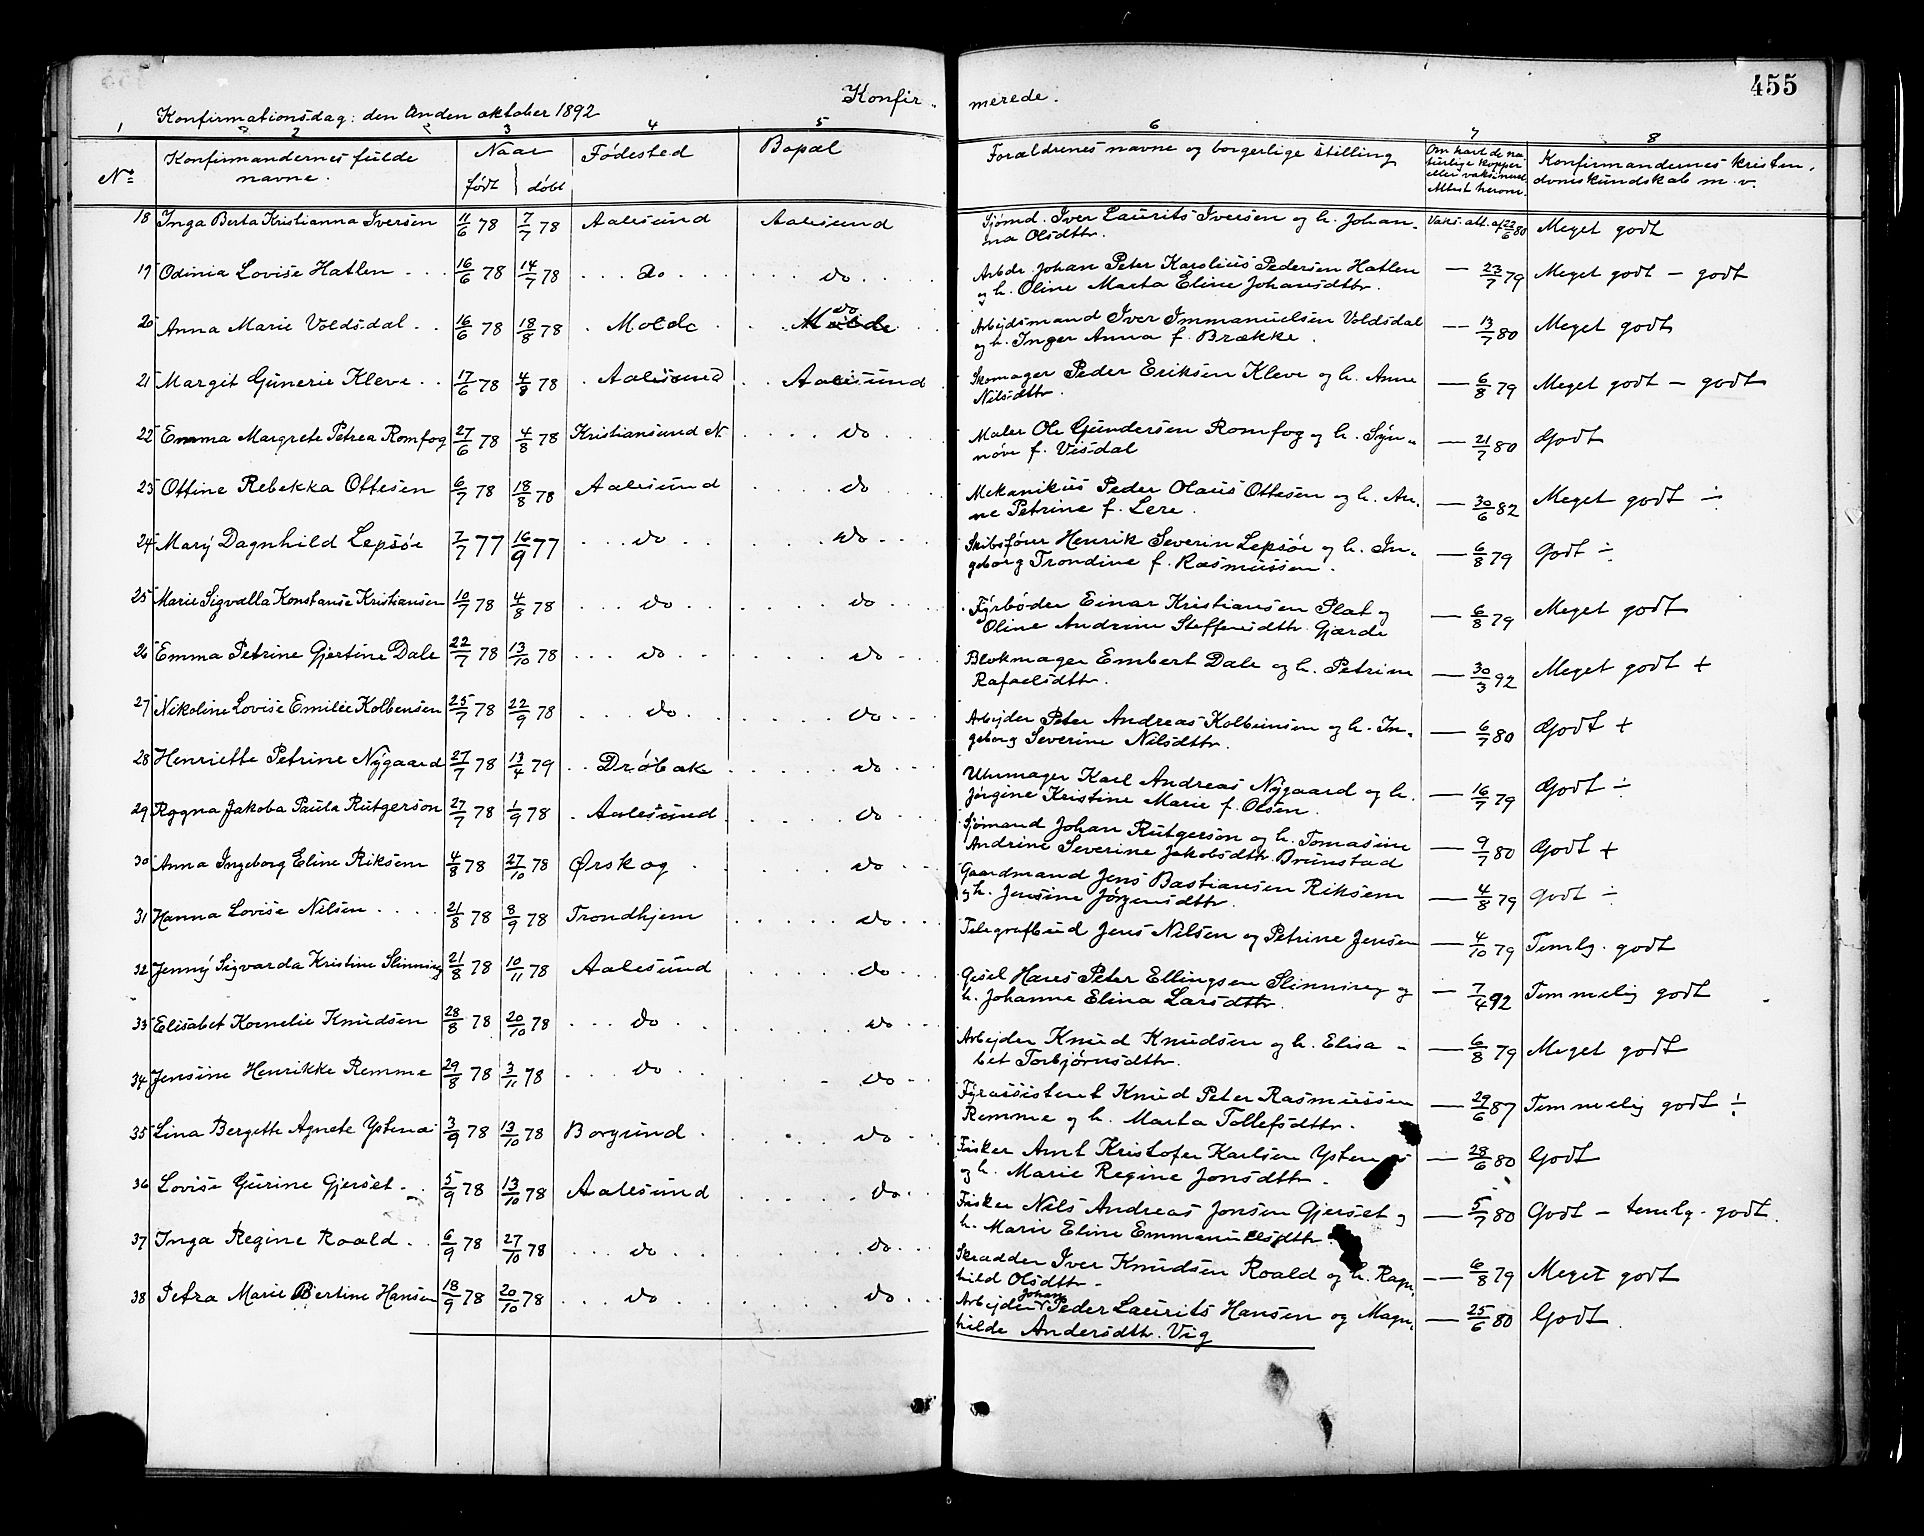 455
Konfir- merede.
Konfirmationsdag: den Anden oktober 1892
1 2 3 4 5 6 7 8
No Konfirmandernes fulde navne. Naar født døbt Fødested Bopæl Forældrenes navne og borgerlige stilling Om havt de naturlige kopper eller vaksineret Attest herom. Konfirmandernes kristendomskundskab m. v.
18 Inga Berta Kristianna Iversen 11/6 78 7/7 78 Aalesund Aalesund Sjømd. Iver Laurits Iversen og h. Johan- Vaks. att. af 22/6 80 Meget godt
na Olsdttr.
19 Odinia Lovise Hatlen 16/6 78 14/7 78 do do Arbdr. Johan Peter Karolius Pedersen Hatlen — 23/7 79 Meget godt - godt
og h. Oline Marta Eline Johansdttr.
20 Anna Marie Voldsdal 16/6 78 18/8 78 Molde Molde do Arbejdsmand Iver Immanuelsen Voldsdal — 13/7 80 Meget godt
og h. Inger Anna f. Brække.
21 Margit Gunerie Kleve 17/6 78 4/8 78 Aalesund Aalesund Skomager Peder Eriksen Kleve og h. Anne — 6/8 79 Meget godt - godt
Nilsdttr.
22 Emma Margrete Petrea Romfog 27/6 78 4/8 78 Kristiansund N. do Maler Ole Gundersen Romfog og h. Syn- — 21/7 80 Godt
nøve f. Visdal
23 Ottine Rebekka Ottesen 6/7 78 18/8 78 Aalesund do Mekanikus Peder Olaus Ottesen og h. An- — 30/6 82 Meget godt ÷
ne Petrine f. Lere.
24 Mary Dagnhild Lepsøe 7/7 77 16/9 77 do do Skibsfører Henrik Severin Lepsøe og h. In- — 6/8 79 Godt ÷
geborg Trondine f. Rasmussen.
25 Marie Sigvalla Konstanse Kristiansen 10/7 78 4/8 78 do do Fyrbøder Einar Kristiansen Plat og — 6/8 79 Meget godt
Oline Andrine Steffensdttr. Gjærde
26 Emma Petrine Gjertine Dale 22/7 78 13/10 78 do do Blokmager Embert Dale og h. Petrine — 30/3 92 Meget godt +
Rafaelsdttr.
27 Nikoline Lovise Emilie Kolbensen 25/7 78 22/9 78 do do Arbejder Peter Andreas Kolbeinsen og h. In- — 6/7 80 Godt +
geborg Severine Nilsdttr.
28 Henriette Petrine Nygaard 27/7 78 13/4 79 Drøbak do Uhrmager Karl Andreas Nygaard og h. — 16/7 79 Godt ÷
Jørgine Kristine Marie f. Olsen.
29 Rggna Jakoba Paula Rutgerson 27/7 78 1/9 78 Aalesund do Sjømand Johan Rutgerson og h. Tomasine — 9/7 80 Godt +
Andrine Severine Jakobsdttr. Brunstad
30 Anna Ingeborg Eline Riksem 4/8 78 27/10 78 Ørskog do Gaardmand Jens Bastiansen Riksem — 4/8 79 Godt ÷
og h. Jensine Jørgensdttr.
31 Hanna Lovise Nilsen 21/8 78 8/9 78 Trondhjem do Telegrafbud Jens Nilsen og Petrine Jensen — 4/10 79 Temlg. godt
32 Jenny Sigvarda Kristine Slinning 21/8 78 10/11 78 Aalesund do Gisel Hans Peter Ellingsen Slinning og — 7/4 92 Temmelig godt
h. Johanne Elina Larsdttr.
33 Elisabet Kornelie Knudsen 28/8 78 20/10 78 do do Arbejder Knud Knudsen og h. Elisa- — 6/8 79 Meget godt
bet Torbjørnsdttr.
34 Jensine Henrikke Remme 29/8 78 3/11 78 do do Fyrassistent Knud Peter Rasmussen — 29/6 87 Temmelig godt ÷
Remme og h. Marta Tollefsdttr.
35 Lina Bergette Agnete Ystenæs 3/9 78 13/10 78 Borgund do Fisker Arnt Kristofer Karlsen Ystenæs — 28/6 80 Godt
og h. Marie Regine Jonsdttr.
36 Lovise Gurine Gjerset 5/9 78 13/10 78 Aalesund do Fisker Nils Andreas Jonsen Gjerset og — 5/7 80 Godt - temlg. godt.
h. Marie Eline Emmanuelsdttr.
37 Inga Regine Roald 6/9 78 27/10 78 do do Skrædder Iver Knudsen Roald og h. Ragn- — 6/8 79 Meget godt
hild Olsdttr.
38 Petra Marie Bertine Hansen 18/9 78 20/10 78 do do Arbejder Johan Peder Laurits Hansen og Magn- — 25/6 80 Godt
hilde Andersdttr. Vig